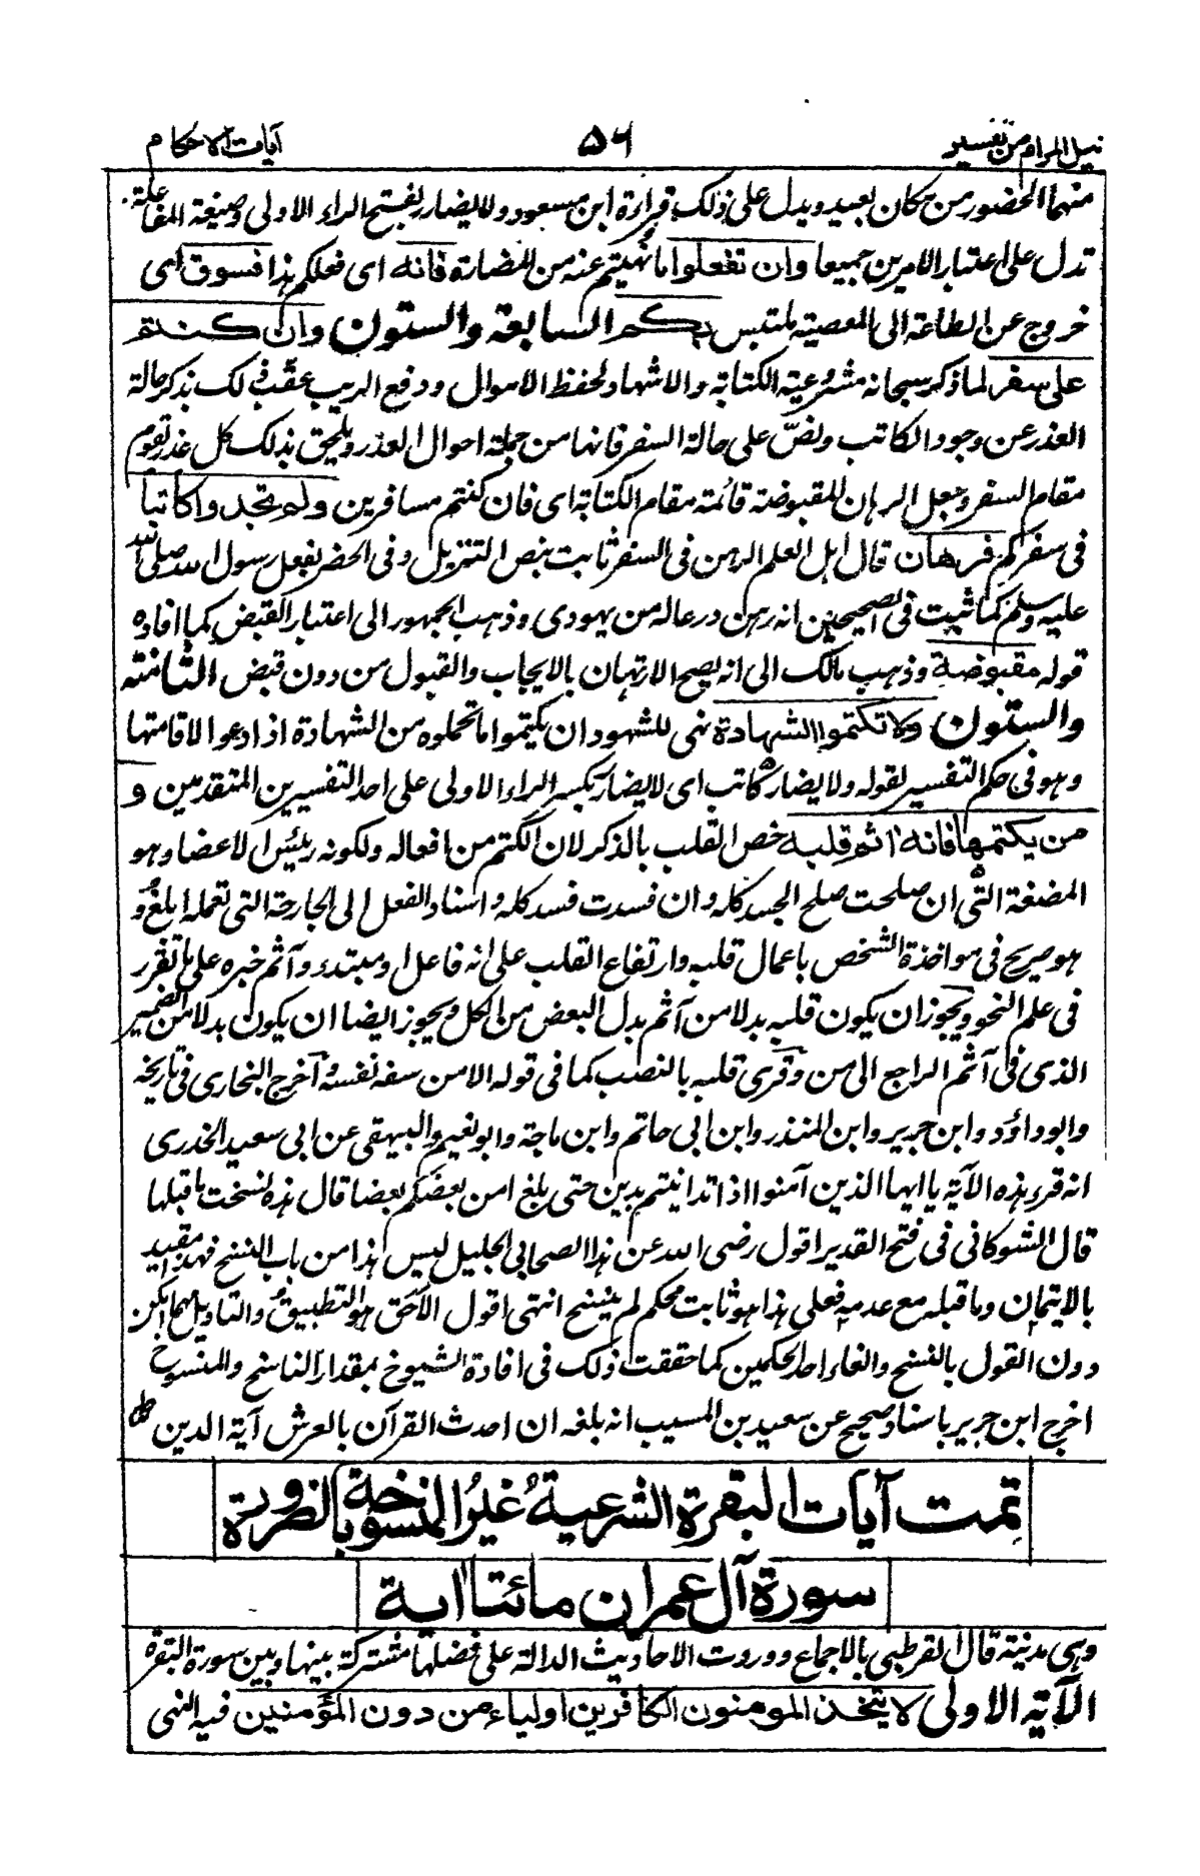 نيل المرام من تفسير
۵٦
آيات الاحكام
منهما الحضور من مكان بعيد ويدل على ذلك قراءة ابن مسعود ولا يضارر بفتح الراء الاولى وصيغة المفاعلة
تدل على اعتبار الامرين جميعا وان تفعلوا ما نهيتم عنه من المضارة فانه اى فعلكم هذا فسوق اى
خروج عن الطاعة الى المعصية ملتبس بكم السابعة والستون وان كنتم
على سفر لما ذكر سبحانه مشروعية الكتابة والاشهاد لحفظ الاموال ودفع الريب عقب ذلك بذكر حالة
العذر عن وجود الكاتب ونصّ على حالة السفر فانها من جملة احوال العذر ويلحق بذلك كل عذر يقوم
مقام السفر وجعل الرهان المقبوضة قائمة مقام الكتابة اى فان كنتم مسافرين ولم تجدوا كاتبا
فى سفركم فرهان قال اهل العلم الرهن فى السفر ثابت بنص التنزيل وفى الحضر بفعل رسول الله صلى الله
عليه وسلم كما ثبت فى الصحيحين انه رهن درعا له من يهودى وذهب الجمهور الى اعتبار القبض كما افاده
قوله مقبوضة وذهب مالك الى انه يصح الارتهان بالايجاب والقبول من دون قبض الثامنة
والستون ولا تكتموا الشهادة نهى للشهود ان يكتموا ما تحملوه من الشهادة اذا دعوا لاقامتها
وهو فى حكم التفسير لقوله ولا يضار كاتب اى لا يضارر بكسر الراء الاولى على احد التفسيرين المتقدمين و
من يكتمها فانه اثم قلبه خص القلب بالذكر لان الكتم من افعاله ولكونه رئيس الاعضا وهو
المضغة التى ان صلحت صلح الجسد كله وان فسدت فسد كله واسناد الفعل الى الجارحة التى تعمله ابلغ و
هو صريح فى مواخذة الشخص باعمال قلبه وارتفاع القلب على انه فاعل او مبتدء وآثم خبره على ما تقرر
فى علم النحو ويجوز ان يكون قلبه بدلا من آثم بدل البعض من الكل ويجوز ايضا ان يكون بدلا من الضمير
الذى فى آثم الراجع الى من وقرى قلبه بالنصب كما فى قوله الا من سفه نفسه آخرج البخارى فى تاريخه
وابو داؤد وابن جرير وابن المنذر وابن ابى حاتم وابن ماجة وابو نعيم والبيهقى عن ابى سعيد الخدرى
انه قرء هذه الآية يا ايها الذين آمنوا اذا تداينتم بدين حتى بلغ امن بعضكم بعضا قال هذه نسخت ما قبلها
قال الشوكانى فى فتح القدير اقول رضى الله عن هذا الصحابى الجليل ليس هذا من باب النسخ فهذا مقيد
بالايتمان وما قبله مع عدمه فعلى هذا هو ثابت محكم لم ينسخ انتهى اقول الاحق هو التطبيق والتاويل مهما امكن
دون القول بالنسخ والغاء احد الحكمين كما حققت ذلك فى افادة الشيوخ بمقدار الناسخ والمنسوخ
اخرج ابن جرير باسناد صحيح عن سعيد بن المسيب انه بلغه ان احدث القرآن بالعرش آية الدين
تمت آيات البقرة الشرعية غير المنسوخة بالضرورة
سورة آل عمران مائتا اية
وهى مدنية قال القرطبى بالاجماع ووردت الاحاديث الدالة على فضلها مشتركة بينها وبين سورة البقرة
الآية الاولى لا يتخذ المومنون الكافرين اولياء من دون المؤمنين فيه النهى